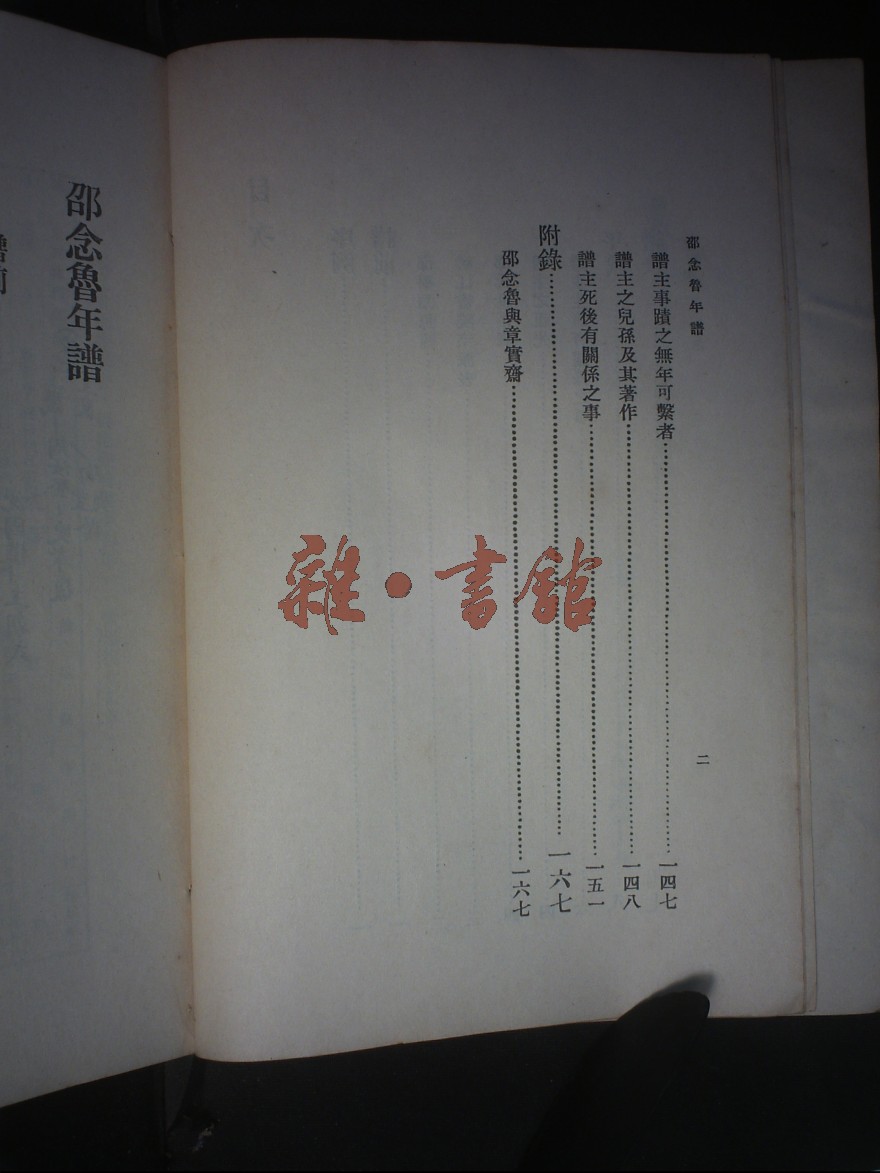 邵念魯年譜
譜主事蹟之無年可繫者……一四七
譜主之兒孫及其著作……一四八
譜主死後有關係之事……一五一
附錄……一六七
邵念魯與章實齋……一六七
二
雜·書館
邵念魯年譜
譜前